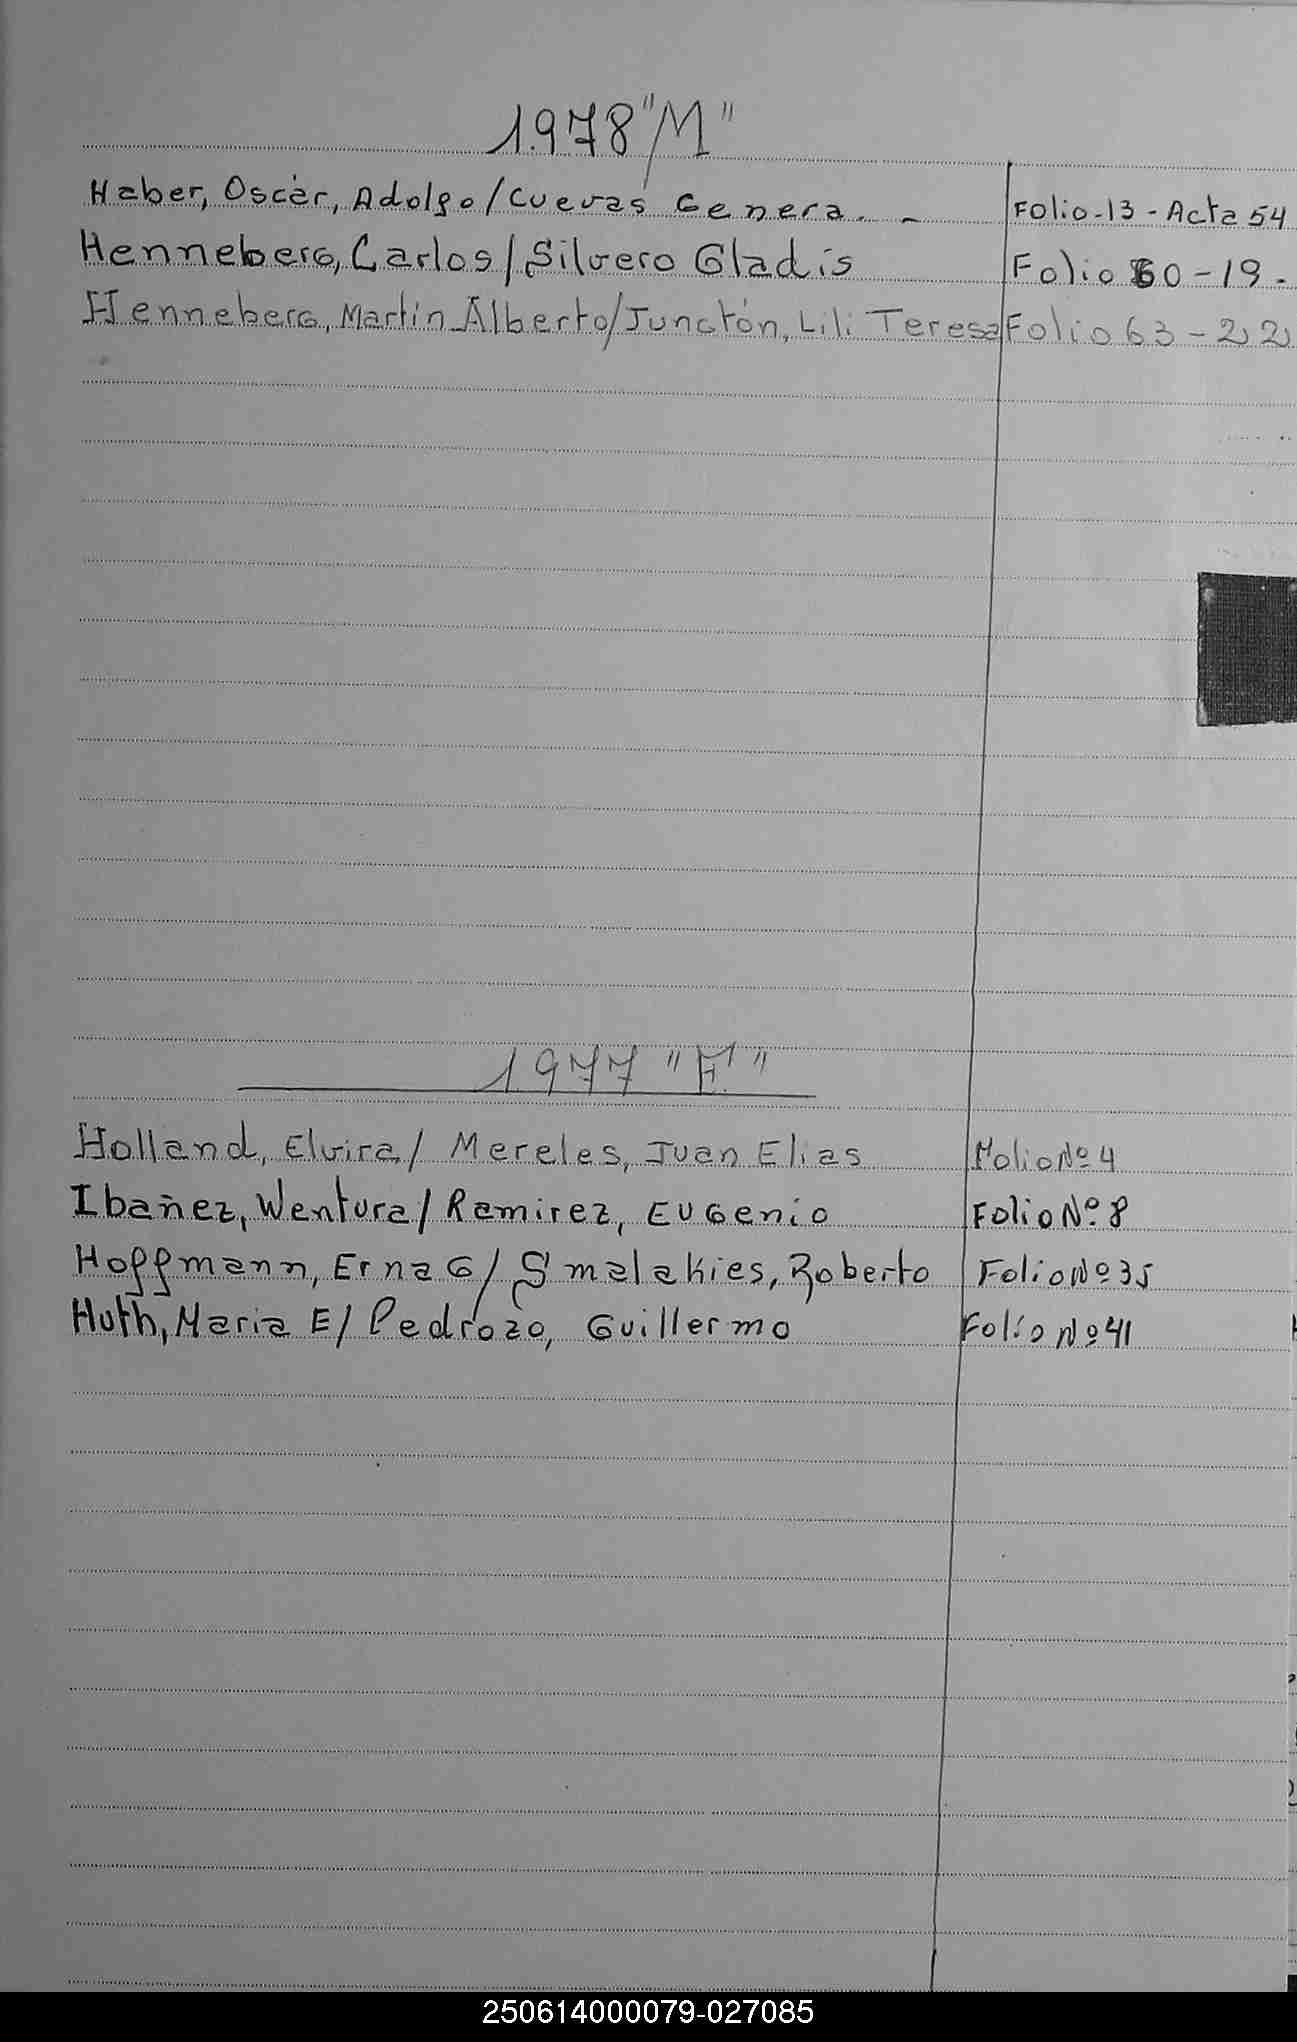 1978 "M"
Haber, Oscar, Adolfo/Cuevas Genera. - Folio-13-Acta 54
Henneberg, Carlos/Silvero Gladis Folio 60-19.
Henneberg, Martin Alberto/Junctón, Lili Teresa Folio 63-22
1977 "F"
Holland, Elvira/ Mereles, Juan Elias Folio Nº 4
Ibañez, Wentura/Ramirez, Eugenio Folio Nº 8
Hoffmann, Erna G/ Smalakies, Roberto Folio Nº 35
Huth, Maria E/ Pedrozo, Guillermo Folio Nº 41
250614000079-027085